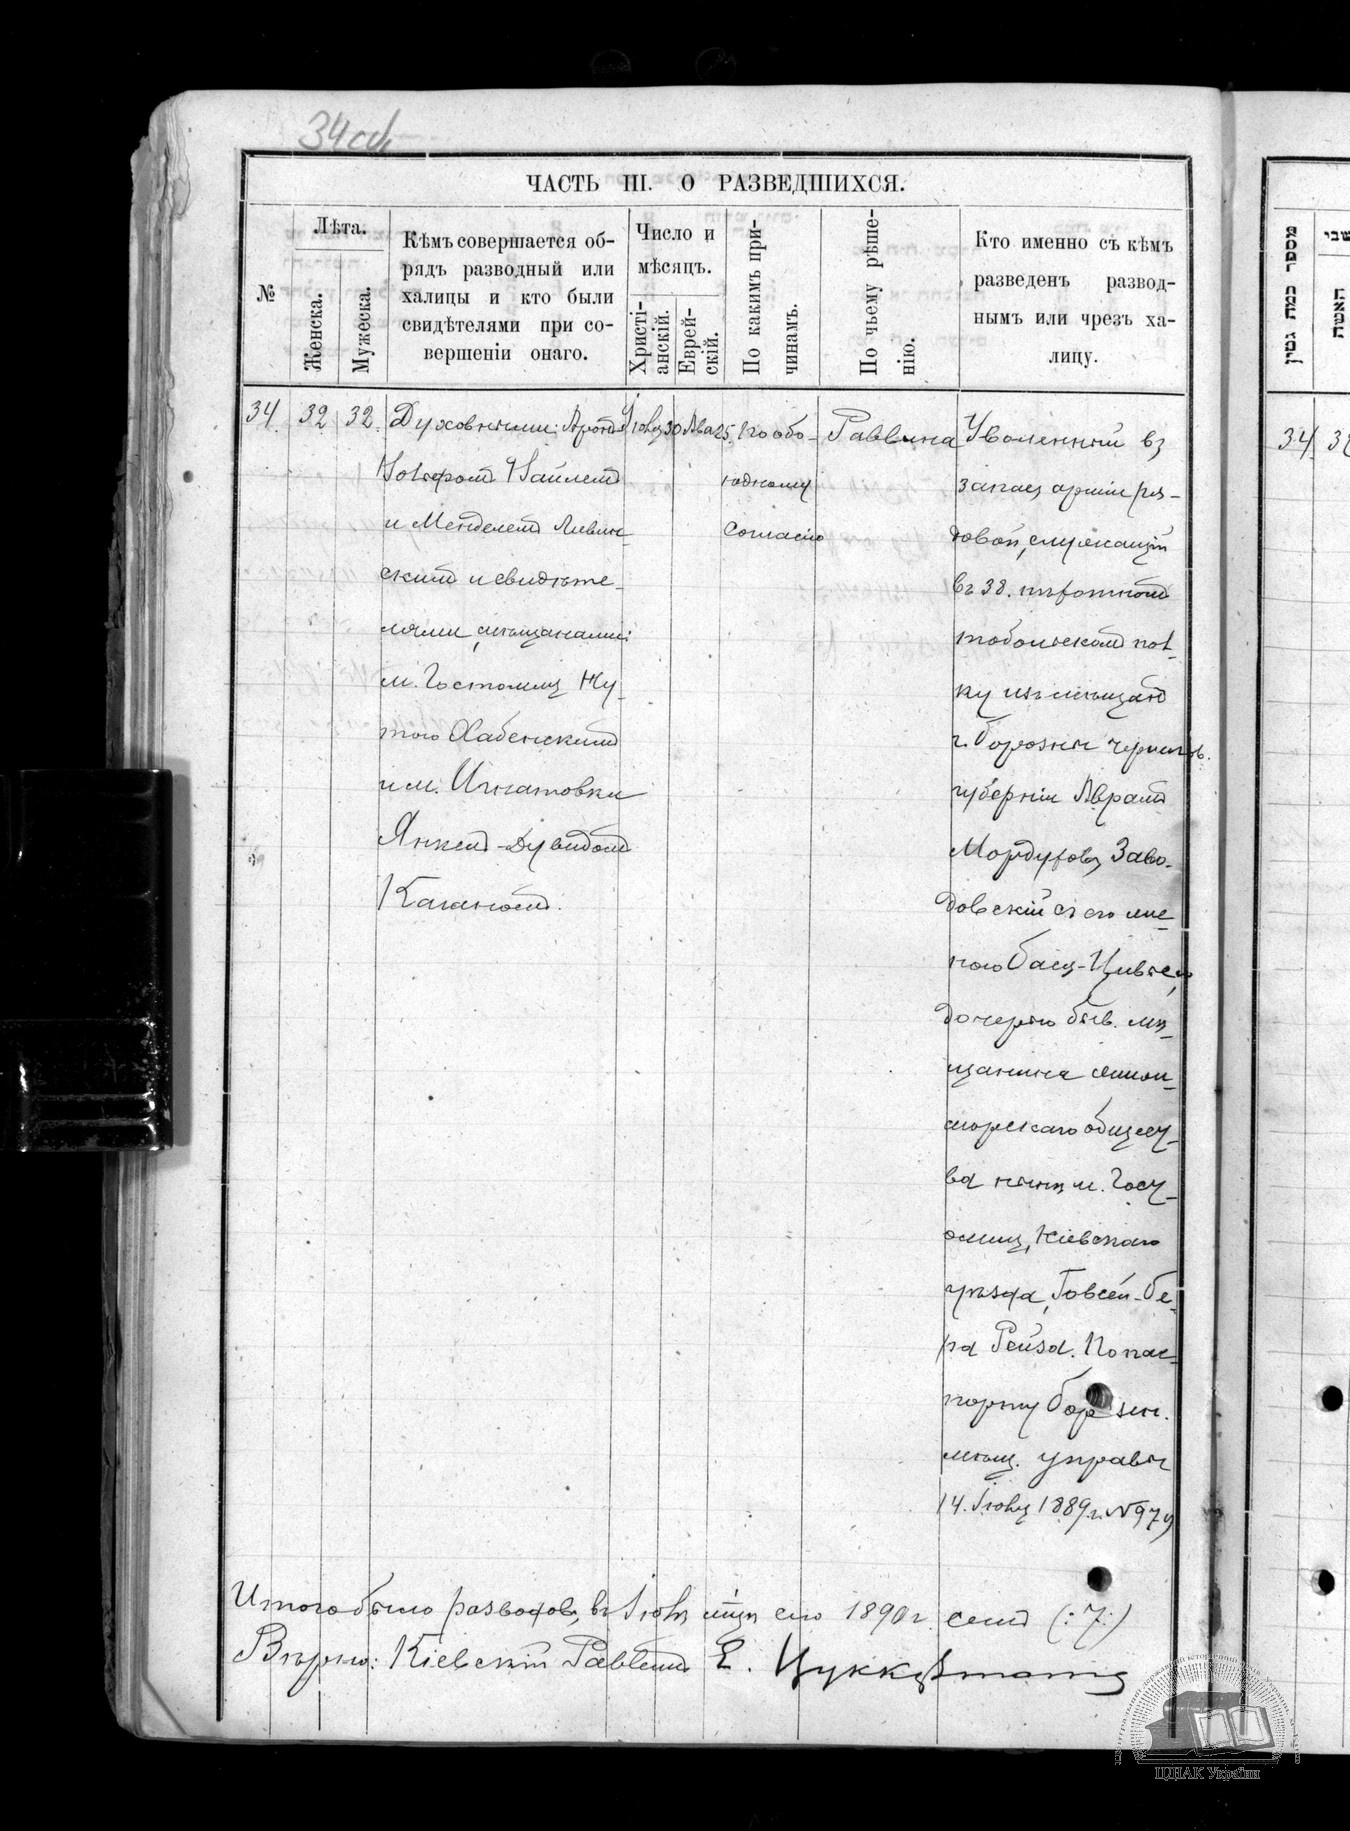 34 об.
ЧАСТЬ III. О РАЗВЕДШИХСЯ.
№
Лѣта.
Женска.
Мужеска.
Кѣмъ совершается об-
рядъ разводный или
халицы и кто были
свидѣтелями при со-
вершеніи онаго.
Число и
мѣсяцъ.
Христі-
анскій.
Еврей-
скій.
По какимъ при-
чинамъ.
По чьему рѣше-
нію.
Кто именно съ кѣмъ
разведенъ развод-
нымъ или чрезъ ха-
лицу.
34. 32 32.
Духовными: Арономъ
и Менделемъ Ливин-
скимъ и свидѣте-
лями, мѣщанами:
м. Гостомля Ну-
тою Хабенскимъ
и м. Игнатовки
Янкел-Дувидомъ
Каганомъ.
Іюля 30
Ава 25.
По обо-
юдному
согласію
Раввина
Уволенный въ
запасъ арміи ря-
довой, служащій
въ 38. пѣхотномъ
тобольскомъ пол-
ку изъ мѣщанъ
г. Борзны чернигов.
губерніи Аврамъ
Мордуховъ Заво-
довскій съ его же-
ною Бася-Цивьею,
дочерью быв. мѣ-
щанина
общест-
ва нынѣ м. Гост-
омля, Кіевскаго
уѣзда, Іовсей-Бе-
ра Рейза. По пас-
порту борзен.
мѣщ. управы
14. Іюля 1889 г. №
Итого было разводовъ въ Іюлѣ м-цѣ сего 1890 г. семь (:7:)
Вѣрно: Кіевскій Раввинъ Е. Цуккерманъ
מספר כמה גטין
האשה
34. 32
ЦДІАК України